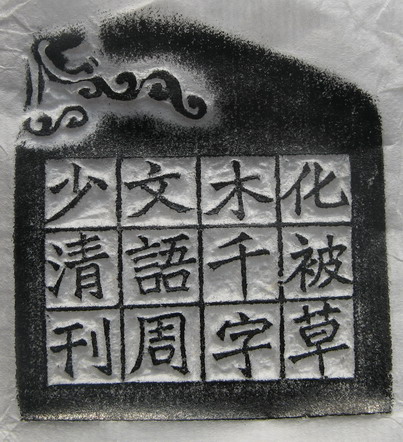 化被草
木千字
文語周
少清刊